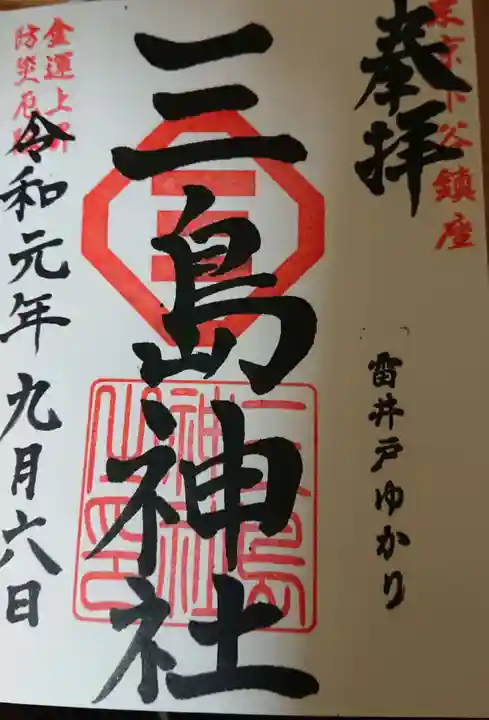 東京下谷鎮座
奉拝
雷井戸ゆかり
三島神社
三島神社之印
金運上昇
防災厄除
令和元年九月六日